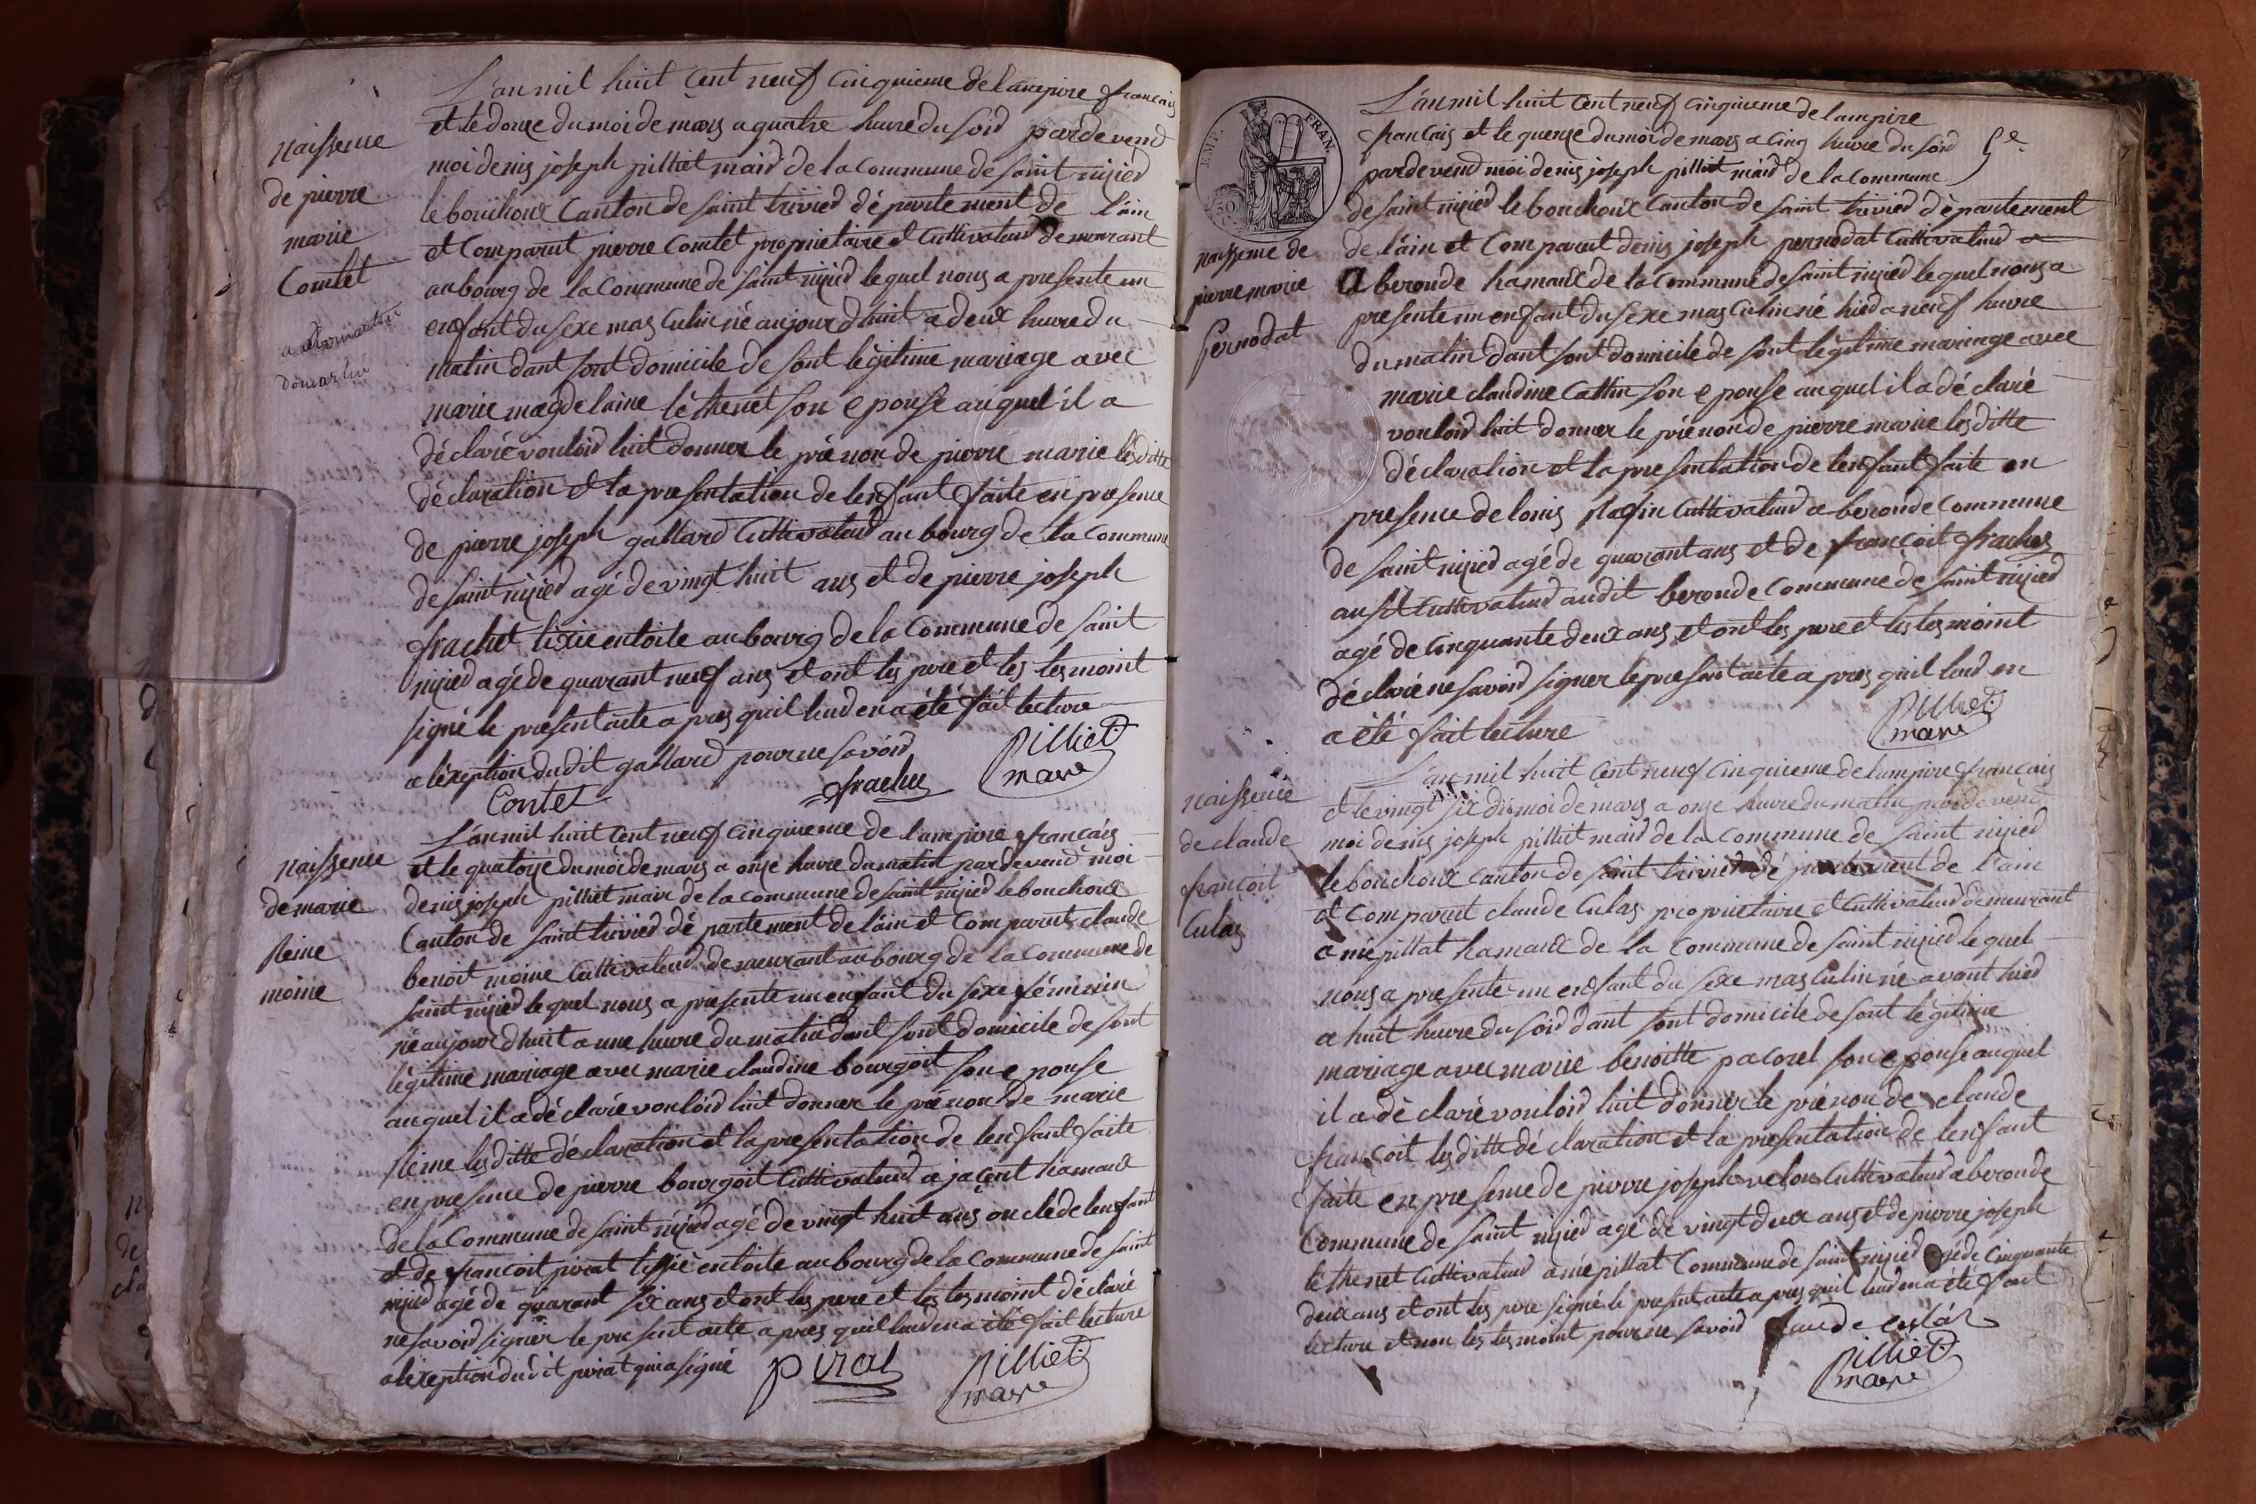 L'an mil huit Cent neuf cinquieme de lampire francais
et le douze du moi de mars a quatre huvre du soir pardevend
naissence
moi denis joseph pilliet maird de la commune de saint nizied
de pierre
le bouchoux Canton de saint trivied département de l'ain
marie
et Comparut pierre Comtet propriétaire et Cultivateud demeurant
Comtet
au bourg de la Commune de saint nizied lequel nous a presente un
enfant du sexe masculin né aujourdhuit a deux huvre du
domartin
matin dant sont domicile de sont légitime mariage avec
marie magdelaine léthenet son epouse auquel il a
déclaré vouloir luit donner le prénon de pierre marie les ditte
déclaration et la presentation de lenfant faite en presence
de pierre joseph gallard Cultivateud au bourg de la Commune
de saint nizied agé de vingt huit ans et de pierre joseph
frachet tixié en toile au bourg de la Commune de saint
nizied agé de quarant neuf ans et ont les pere et les tesmoint
signé le present acte apres quil lud en a été fait lecture
a lexeption du dit gallard pour ne savoir
Contet frachet pilliet
maire
L'an mil huit Cent neuf cinquieme de l'ampire francais
naissence
et le quatorze du moi de mars a onze huvre du matin pardevend moi
de marie
denis joseph pilliet maire de la commune de saint nizied le bouchoux
Reine
Canton de saint trivied département de l'ain et Comparut claude
moine
benoit moine Cultivateud demeurant au bourg de la Commune de
saint nizied lequel nous a presente un enfant du sexe féminin
né aujourdhuit a une huvre du matin dant sont domicile de sont
légitime mariage avec marie claudine bourgoit son epouse
auquel il a déclaré vouloir luit donner le prénon de marie
Reine les ditte déclaration et la presentation de lenfant faite
en presence de pierre bourgoit Cultivateud a jacent hamaux
de la Commune de saint nizied agé de vingt huit ans oncle de lenfant
et de francoit pirat tissié en toile au bourg de la Commune de saint
nizied agé de quarant six ans et ont les pere et les tesmoint déclaré
ne savoir signer le present acte apres quil lud en a été fait lecture
a lexeption dudit pirat qui a signé pirat pilliet
maire
EMP. FRAN.
L'an mil huit Cent neuf cinquieme de lampire
francais et le quenze du moi de mars a cinq huvre du soir 5e
pardevend moi denis joseph pilliet maird de la Commune
de saint nizied le bouchoux Canton de saint trivied département
naissence de
de l'ain et Comparut denis joseph pernodat Cultivateud
pierre marie
A beronde hamaux de la Commune de saint nizied lequel nous a
pernodat
presente un enfant du sexe masculin né hied a neuf huvre
du matin dant sont domicile de sont légitime mariage avec
marie claudine Cattin son epouse auquel il a déclaré
vouloir luit donner le prénon de pierre marie les ditte
déclaration et la presentation de lenfant faite en
presence de louis Cultivateud a beronde Commune
de saint nizied agé de quarant ans et de francoit frachet
ausit Cultivateud audit beronde Commune de saint nizied
agé de cinquante deux ans et ont les pere et les tesmoint
déclaré ne savoir signer le present acte apres quil lud en
a été fait lecture pilliet
maire
L'an mil huit Cent neuf cinquieme de lampire francais
naissence
et le vingt six du moi de mars a onze huvre du matin pardevend
de claude
moi denis joseph pilliet maird de la Commune de saint nizied
francoit
le bouchoux canton de saint trivied département de l'ain
Culas
et Comparut claude Culas propriétaire et Cultivateud demeurant
a mépillat hamaux de la Commune de saint nizied lequel
nous a presente un enfant du sexe masculin né avant hied
a huit huvre du soir dant sont domicile de sont légitime
mariage avec marie benoitte pacorel son epouse auquel
il a déclaré vouloir luit donner le prénon de claude
francoit les ditte déclaration et la presentation de lenfant
faite en presence de pierre joseph velon Cultivateud a beronde
Commune de saint nizied agé de vingt deux ans et de pierre joseph
léthenet Cultivateud a mépillat Commune de saint nizied agé de cinquante
deux ans et ont les pere signé le present acte apres quil lud en a été fait
lecture et non les tesmoint pour ne savoir claude culas
pilliet
maire